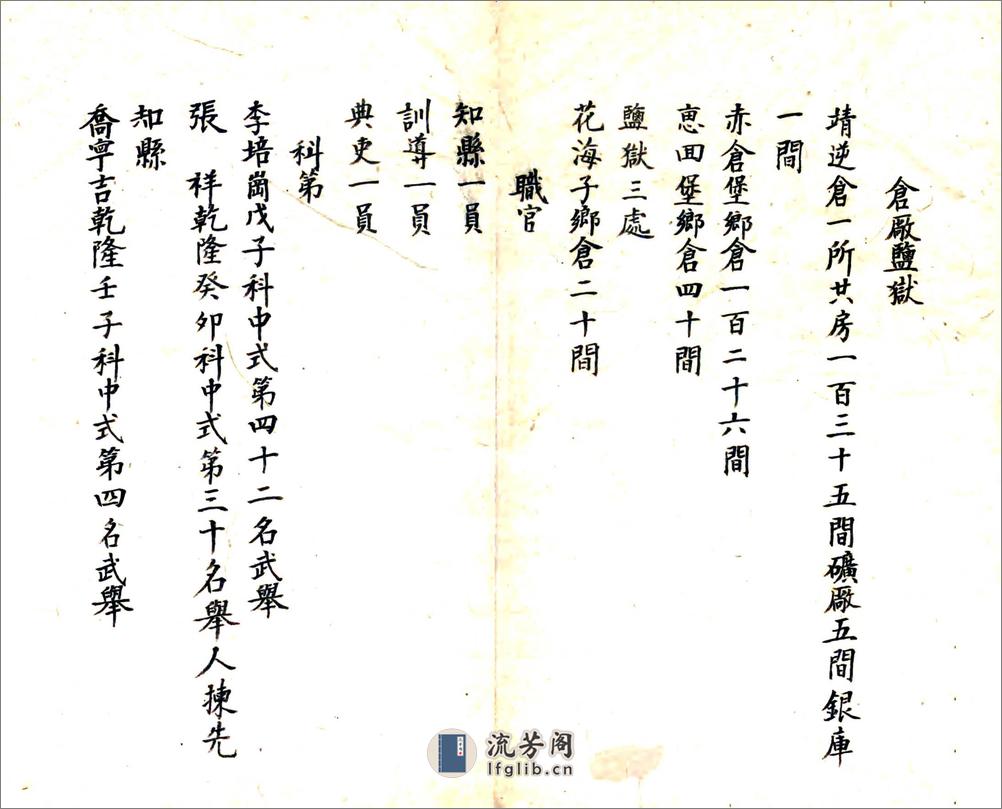 倉厰鹽獄
靖逆倉一所共房一百三十五間礦厰五間銀庫
一間
赤倉堡鄉倉一百二十六間
惠回堡鄉倉四十間
鹽獄三處
花海子鄉倉二十間
職官
知縣一員
訓導一員
典吏一員
科第
李培崗戊子科中式第四十二名武舉
張　祥乾隆癸卯科中式第三十名舉人揀先
知縣
喬寧吉乾隆壬子科中式第四名武舉
流芳阁
lfglib.cn